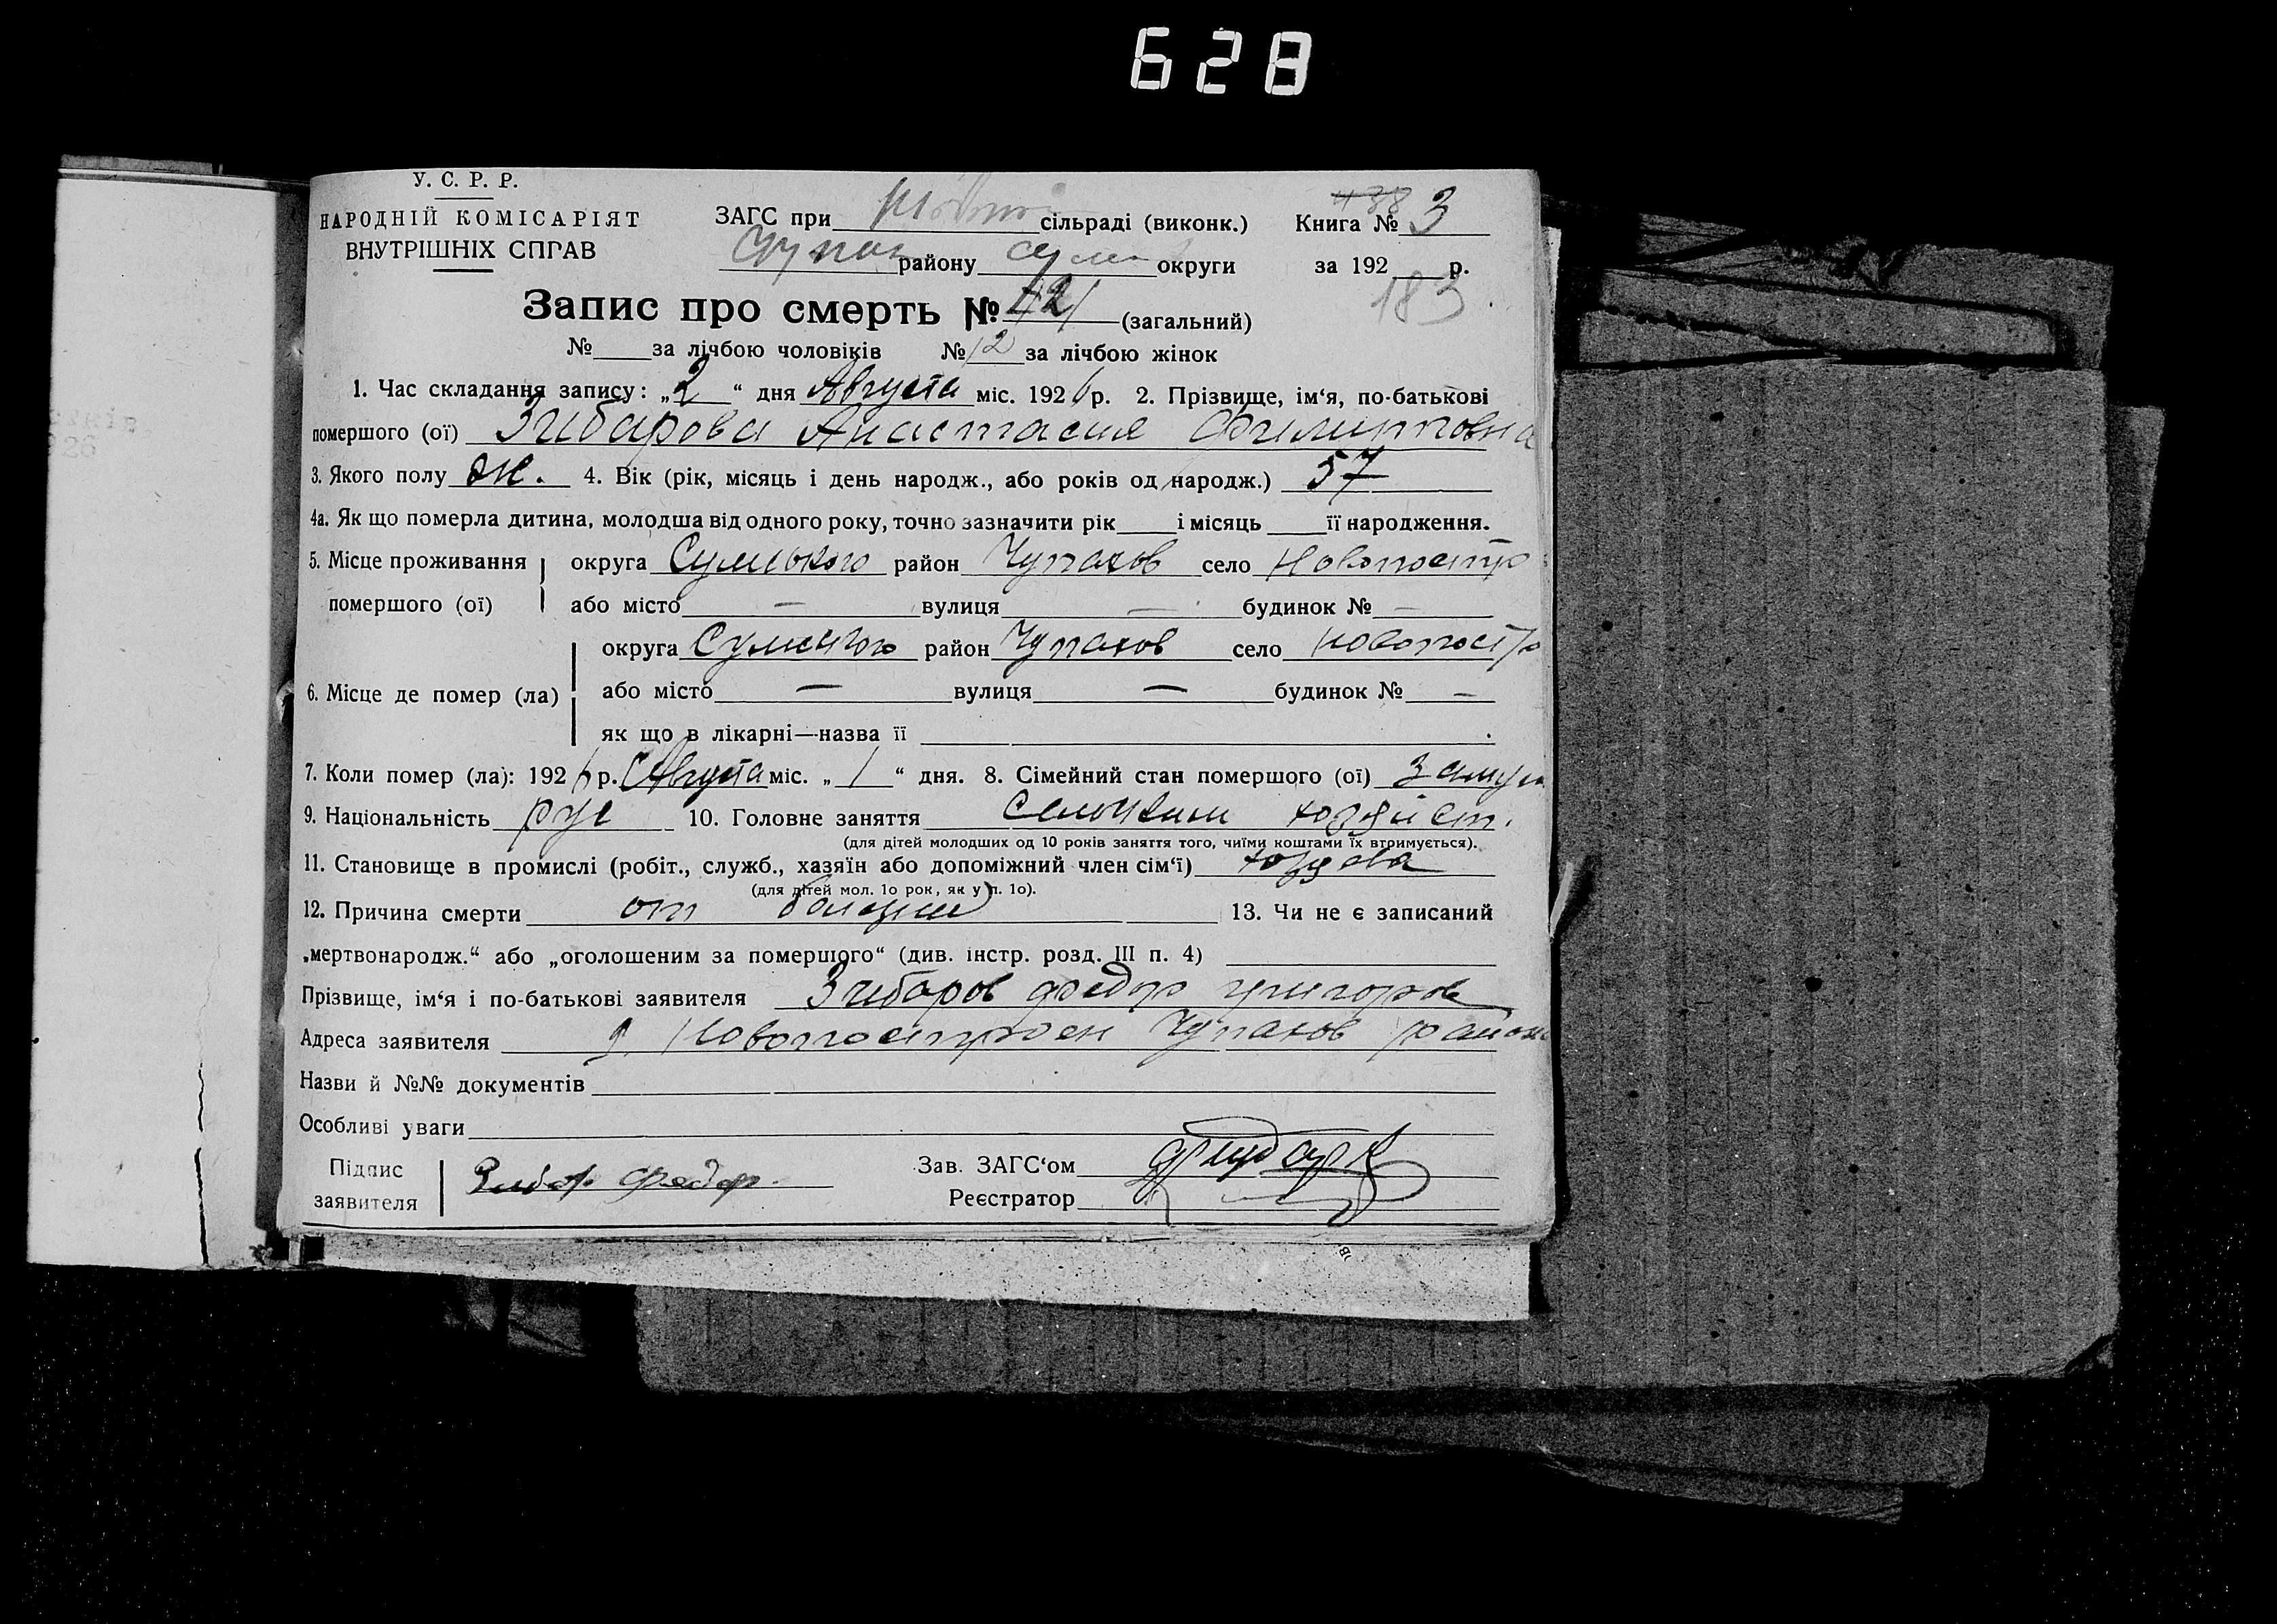 628
У. С. Р. Р.
НАРОДНІЙ КОМІСАРІЯТ
ВНУТРІШНІХ СПРАВ
ЗАГС при сільраді (виконк.) Книга № 3
Чупах району Сум округи за 192 р.
183
Запис про смерть № 42 (загальний)
№ за лічбою чоловіків № 12 за лічбою жінок
1. Час складання запису: „2“ дня Августа міс. 1926 р. 2. Прізвище, ім‘я, по-батькові
помершого (ої) Зибарова Анастасия Филипповна
3. Якого полу ж. 4. Вік (рік, місяць і день народж., або років од народж.) 57
4а. Як що померла дитина, молодша від одного року, точно зазначити рік і місяць її народження.
5. Місце проживання округа Сумського район Чупахов село Новопостро
помершого (ої) або місто — вулиця — будинок № —
округа Сумського район Чупахов село Новопостро
6. Місце де помер (ла) або місто — вулиця — будинок № —
як що в лікарні—назва її
7. Коли помер (ла): 1926 р. Августа міс. „1“ дня. 8. Сімейний стан помершого (ої) замуж
9. Національність рус 10. Головне заняття хозяйст.
(для дітей молодших од 10 років заняття того, чиїми коштами їх втримується).
11. Становище в промислі (робіт., служб., хазяїн або допоміжний член сім‘ї)
(для дітей мол. 1о рок, як у п. 1о).
12. Причина смерти от 13. Чи не є записаний
„мертвонародж.“ або „оголошеним за помершого“ (див. інстр. розд. III п. 4)
Прізвище, ім‘я і по-батькові заявителя Зибаров Федор григоров
Адреса заявителя Новопостроен Чупахов район
Назви й №№ документів
Особливі уваги
Підпис
заявителя Зибар Федор
Зав. ЗАГС‘ом
Реєстратор